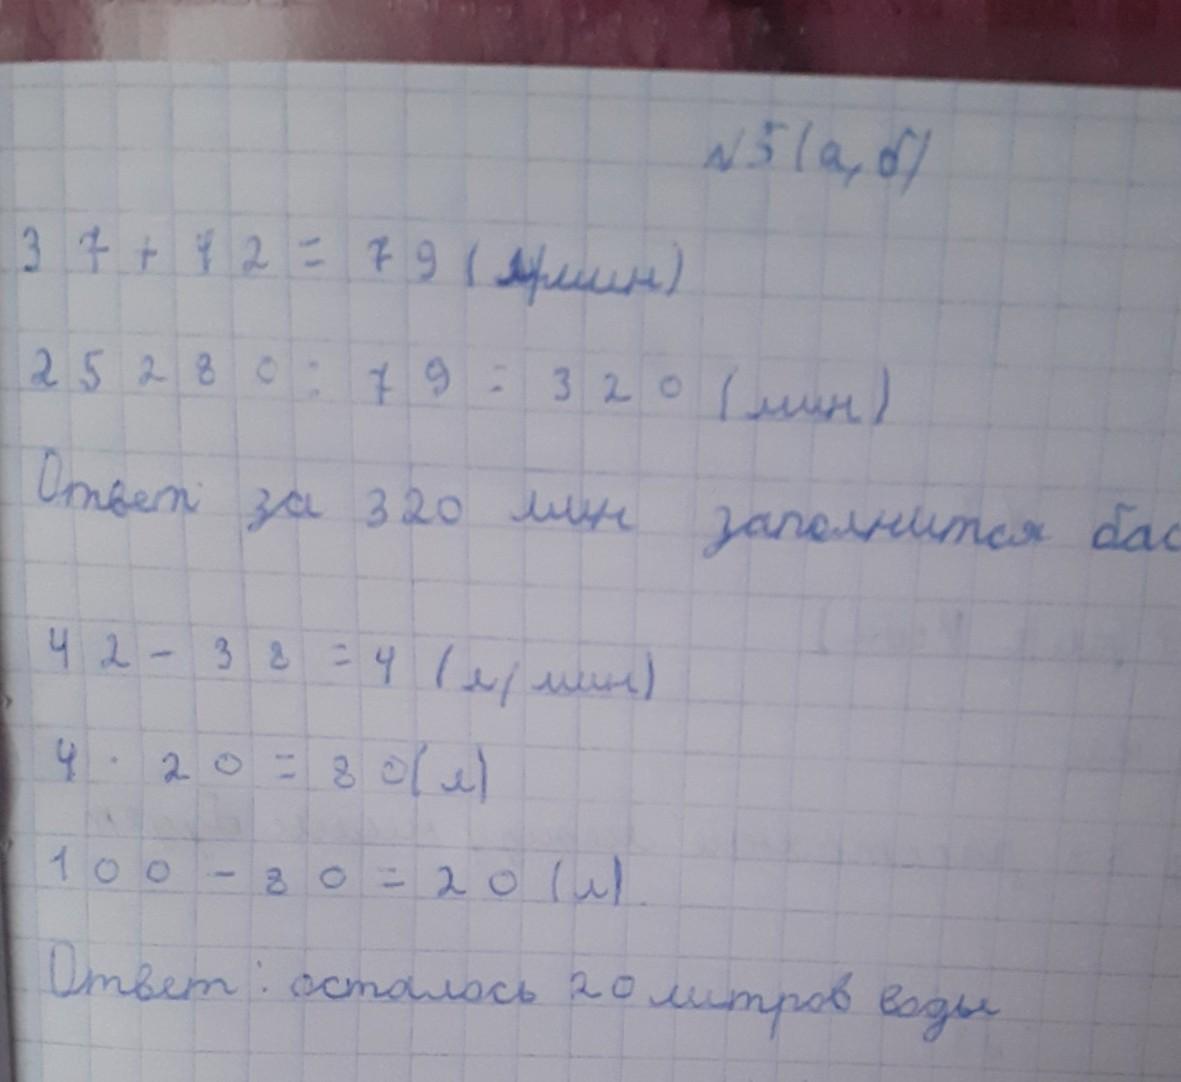 №5(а, б)
37+42=79 (л/мин)
25280:79=320 (мин)
Ответ: за 320 мин заполнится бас
42-38=4 (л/мин)
4·20=80(л)
100-80=20(л).
Ответ: осталось 20 литров воды